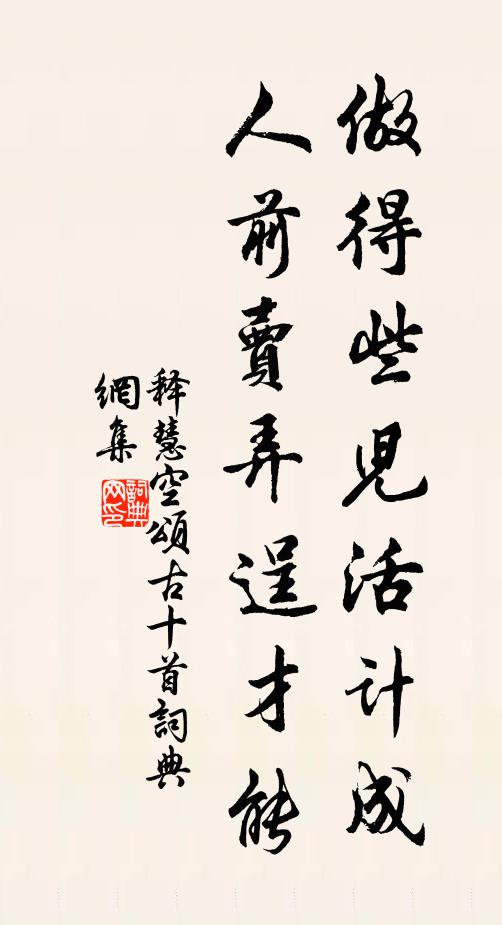 做得些兒活計成
人前賣弄逞才能
释慧空頌古十首詞典
網集
詞典
网印